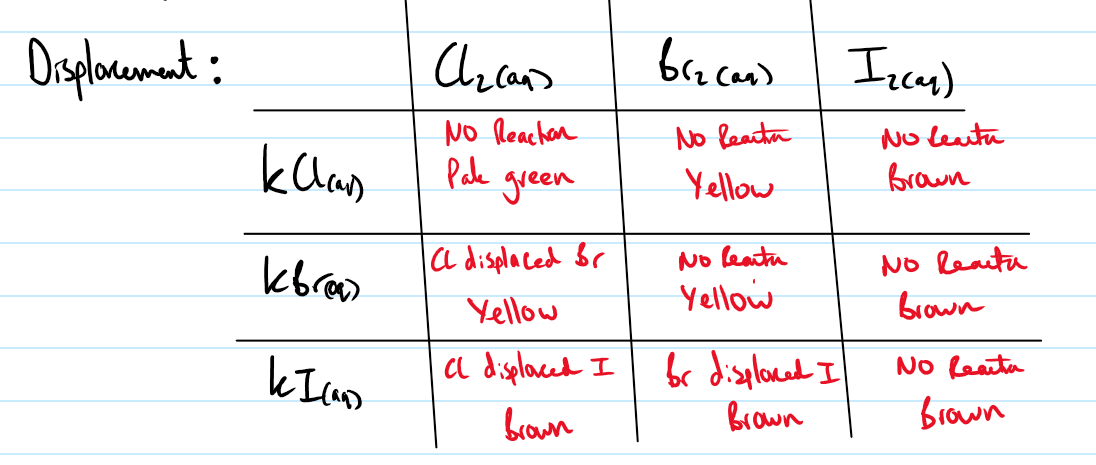 Displacement:
Cl2(aq) Br2(aq) I2(aq)
KCl(aq)
No Reaction
Pale green
No Reaction
Yellow
No Reaction
Brown
KBr(aq)
Cl displaced Br
Yellow
No Reaction
Yellow
No Reaction
Brown
KI(aq)
Cl displaced I
Brown
Br displaced I
Brown
No Reaction
Brown